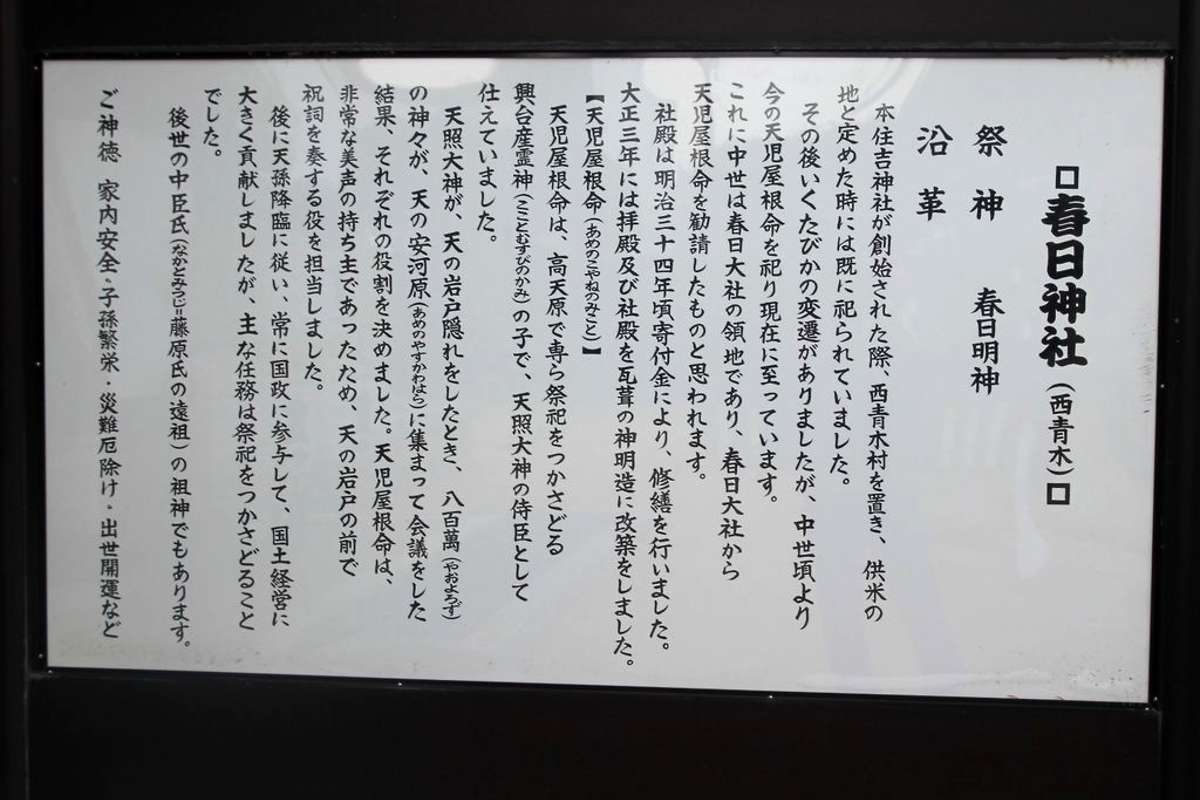 □春日神社(西青木)□
祭神 春日明神
沿革
本住吉神社が創始された際、西青木村を置き、供米の
地と定めた時には既に祀られていました。
その後いくたびかの変遷がありましたが、中世頃より
今の天児屋根命を祀り現在に至っています。
これに中世は春日大社の領地であり、春日大社から
天児屋根命を勧請したものと思われます。
社殿は明治三十四年頃寄付金により、修繕を行いました。
大正三年には拝殿及び社殿を瓦葺の神明造に改築をしました。
【天児屋根命(あめのこやねのみこと)】
天児屋根命は、高天原で専ら祭祀をつかさどる
興台産霊神(こことむすびのかみ)の子で、天照大神の侍臣として
仕えていました。
天照大神が、天の岩戸隠れをしたとき、八百萬(やおよろず)
の神々が、天の安河原(あめのやすかわはら)に集まって会議をした
結果、それぞれの役割を決めました。天児屋根命は、
非常な美声の持ち主であったため、天の岩戸の前で
祝詞を奏する役を担当しました。
後に天孫降臨に従い、常に国政に参与して、国土経営に
大きく貢献しましたが、主な任務は祭祀をつかさどること
でした。
後世の中臣氏(なかとみうじ=藤原氏の遠祖)の祖神でもあります。
ご神徳 家内安全・子孫繁栄・災難厄除け・出世開運など